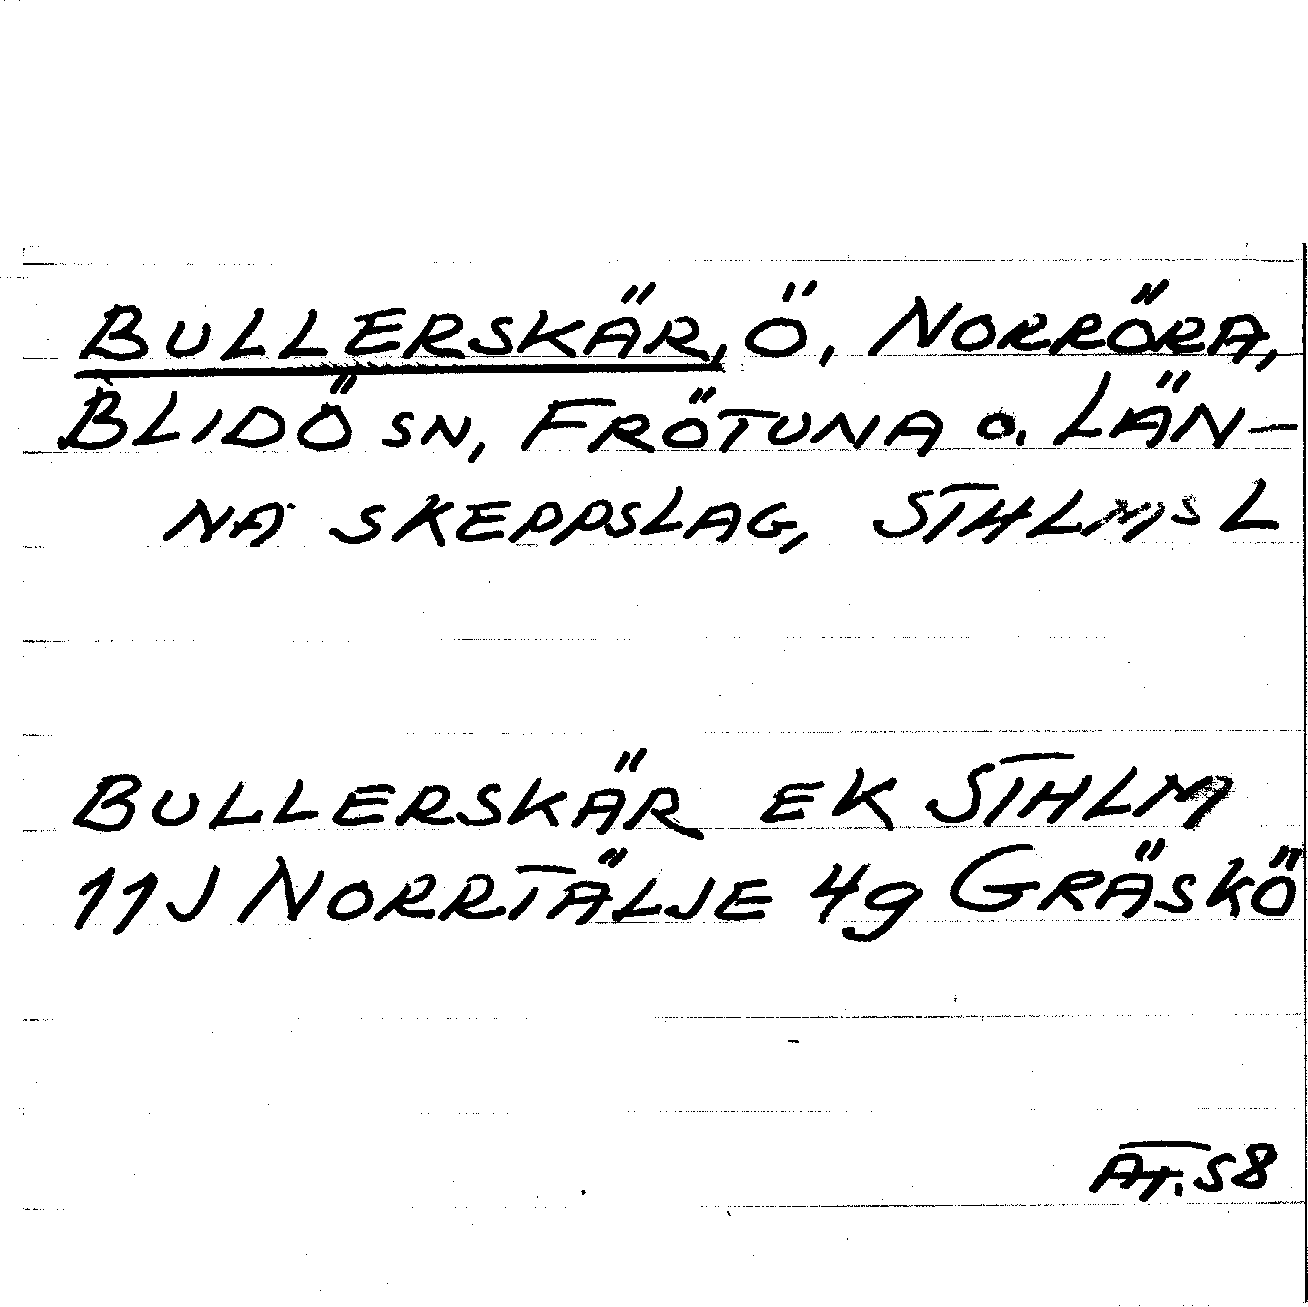 BULLERSKÄR, Ö, NORRÖRA,
BLIDÖ SN, FRÖTUNA O. LÄN-
NA SKEPPSLAG, STHLMS L
BULLERSKÄR EK STHLM
11J NORRTÄLJE 4g GRÄSKÖ
AT. S8